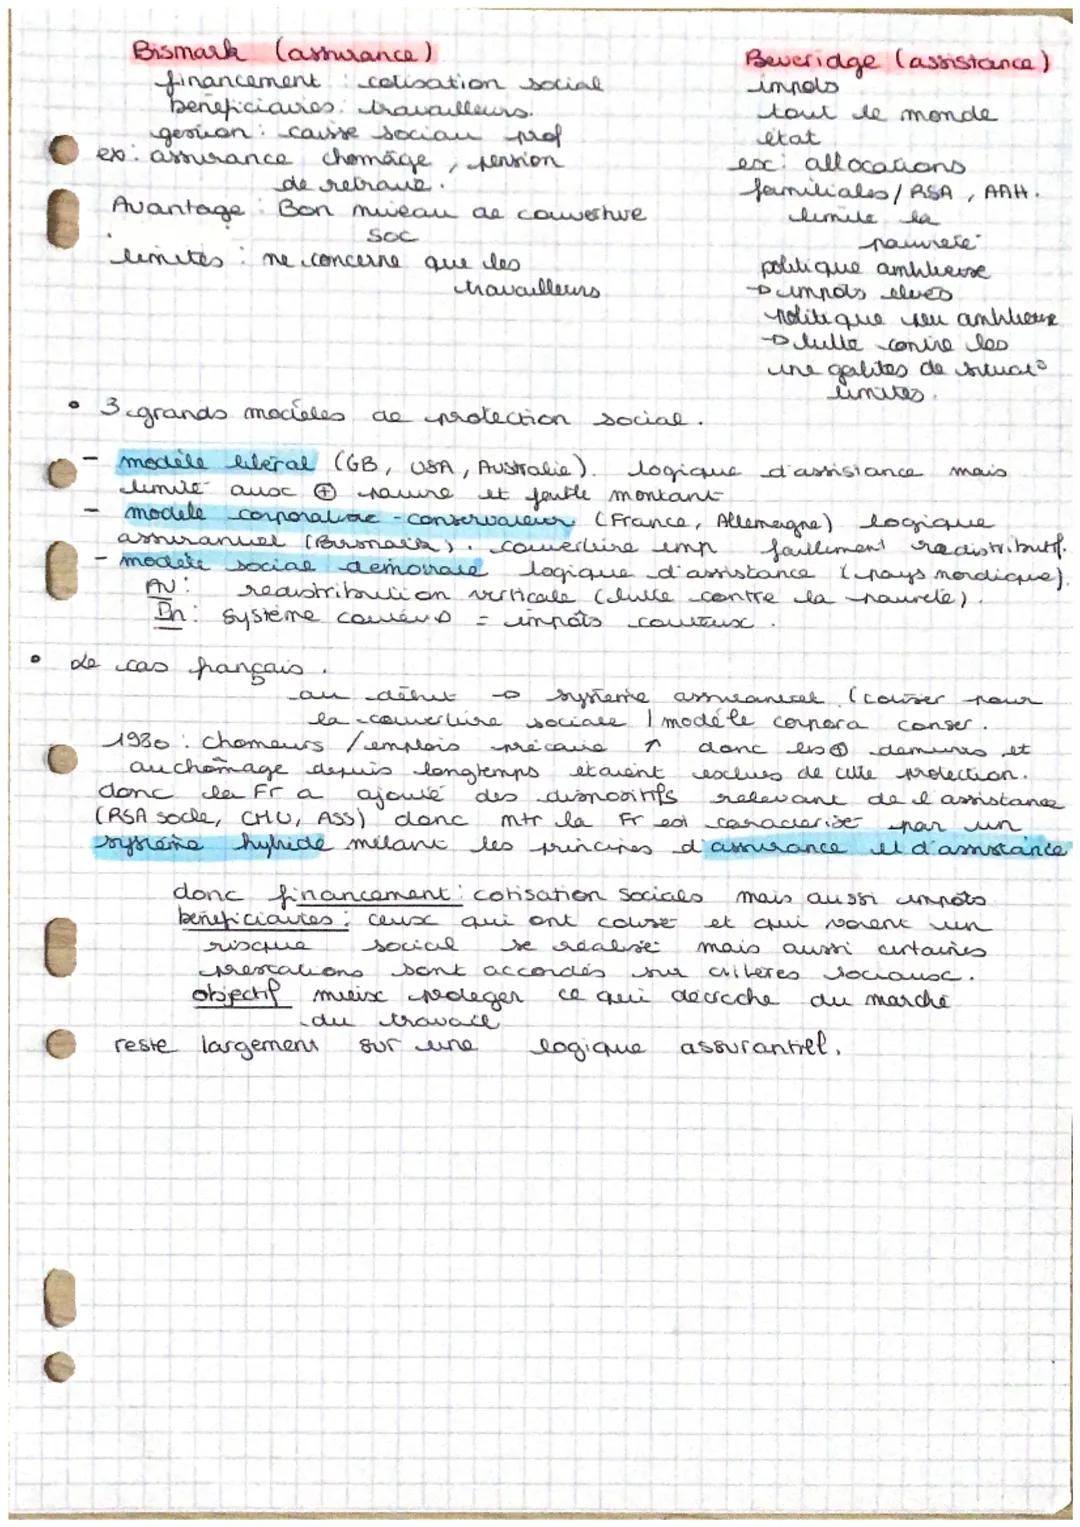 Bismark (assurance)
financement : cotisation social
beneficiaires : travailleurs.
gestion : caisse sociau prof
ex : assurance chomâge, pension
de retraite.
Avantage : Bon niveau de couverture
soc
limites : ne concerne que les
travailleurs
Beveridge (assistance)
impots
tout le monde
état
ex : allocations
familiales / RSA, AAH.
limite la
pauvreté
politique ambitieuse
→ impots elvés
politique peu ambitieux
→ lutte contre les
inegalités de situat°
limites.
• 3 grands modèles de protection social.
- modèle libéral (GB, USA, Australie). logique d'assistance mais
limité aux ⊕ pauvre et faible montant
- modèle corporatiste-conservateur (France, Allemagne) logique
assurantiel (Bismark). couverture imp faiblement redistributif.
- modèle social démocrate logique d'assistance (pays nordique).
AV : redistribution verticale (lutte contre la pauvreté).
In : système couteux = impôts couteux.
• Le cas français.
au début → système assurantiel (cotiser pour
la couverture sociale / modèle corpora conser.
1980 : chomeurs / emplois précaire ↑ donc les ⊕ demunis et
au chômage depuis longtemps étaient exclues de cette protection.
donc la Fr a ajouté des dispositifs relevant de l'assistance
(RSA socle, CMU, ASS) donc mtr la Fr est caractérisé par un
système hybride mêlant les principes d'assurance et d'assistance
donc financement : cotisation sociales mais aussi impots
beneficiaires : ceux qui ont cotisé et qui voient un
risque social se réalisé mais aussi certaines
prestations sont accordés sur critères sociaux.
objectif mieux proteger ce qui décroche du marché
du travail
reste largement sur une logique assurantiel.